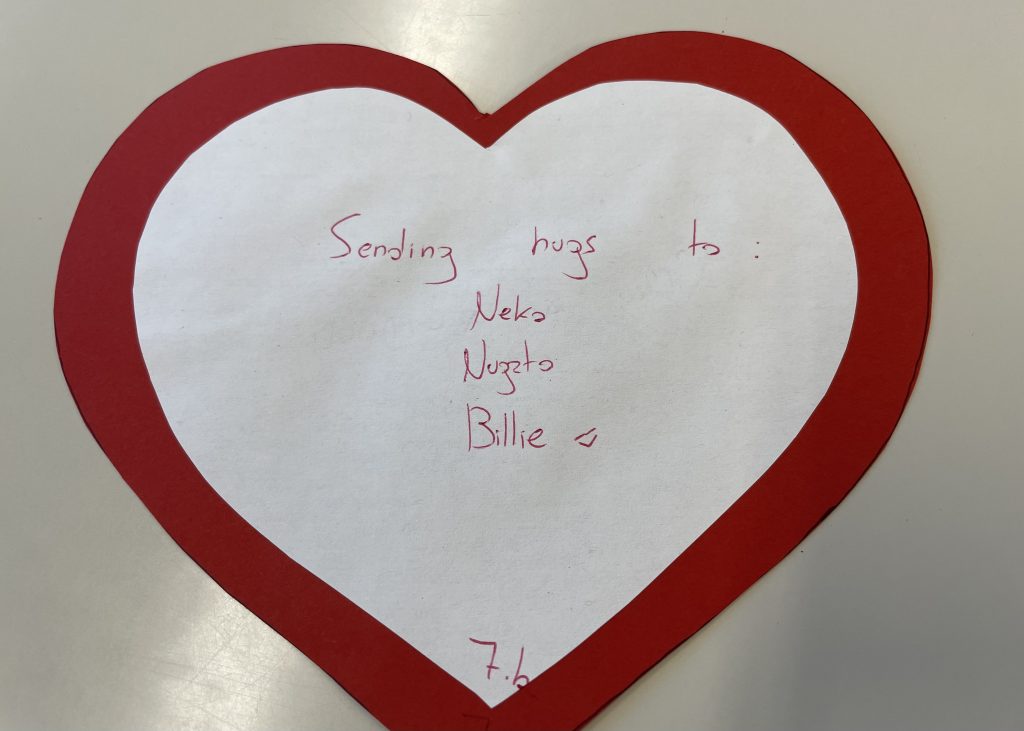 Sending hugs to:
Neko
Nugzto
Billie
7.b